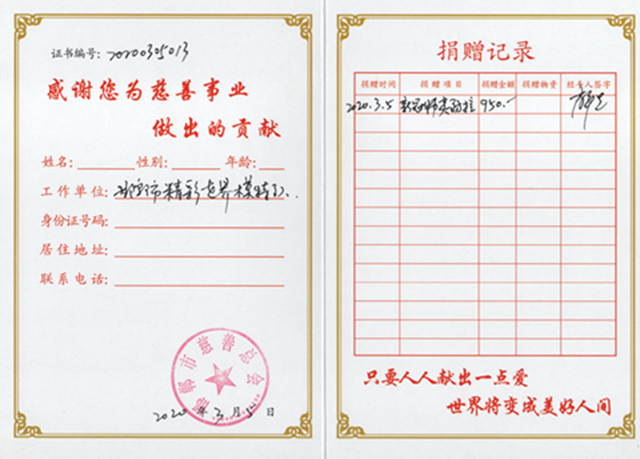 证书编号: 20200305013
感谢您为慈善事业
做出的贡献
姓名: 性别: 年龄:
工作单位: 邯郸市精彩世界模特队
身份证号码:
居住地址:
联系电话:
邯郸市慈善总会
2020年3月5日
捐赠记录
捐赠时间 捐赠项目 捐赠金额 捐赠物资 经手人签字
2020.3.5 新冠肺炎防控 950.-
只要人人献出一点爱
世界将变成美好人间